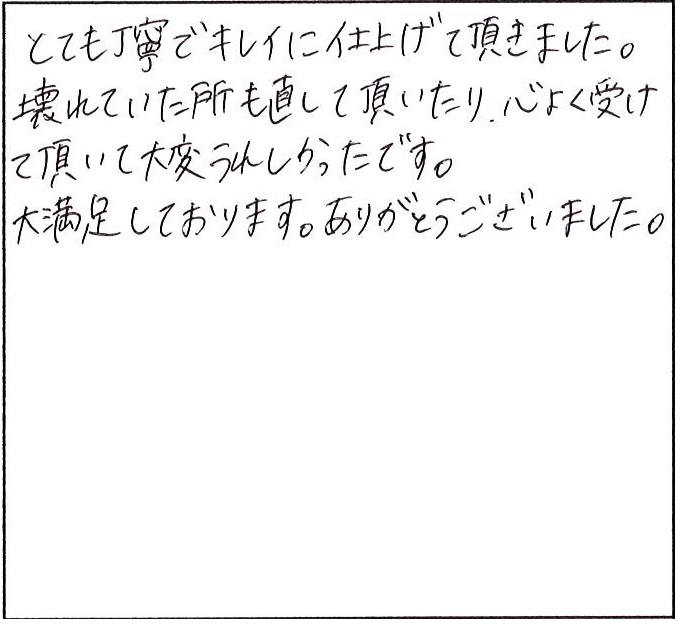 とても丁寧でキレイに仕上げて頂きました。
壊れていた所も直して頂いたり、心よく受け
て頂いて大変うれしかったです。
大満足しております。ありがとうございました。